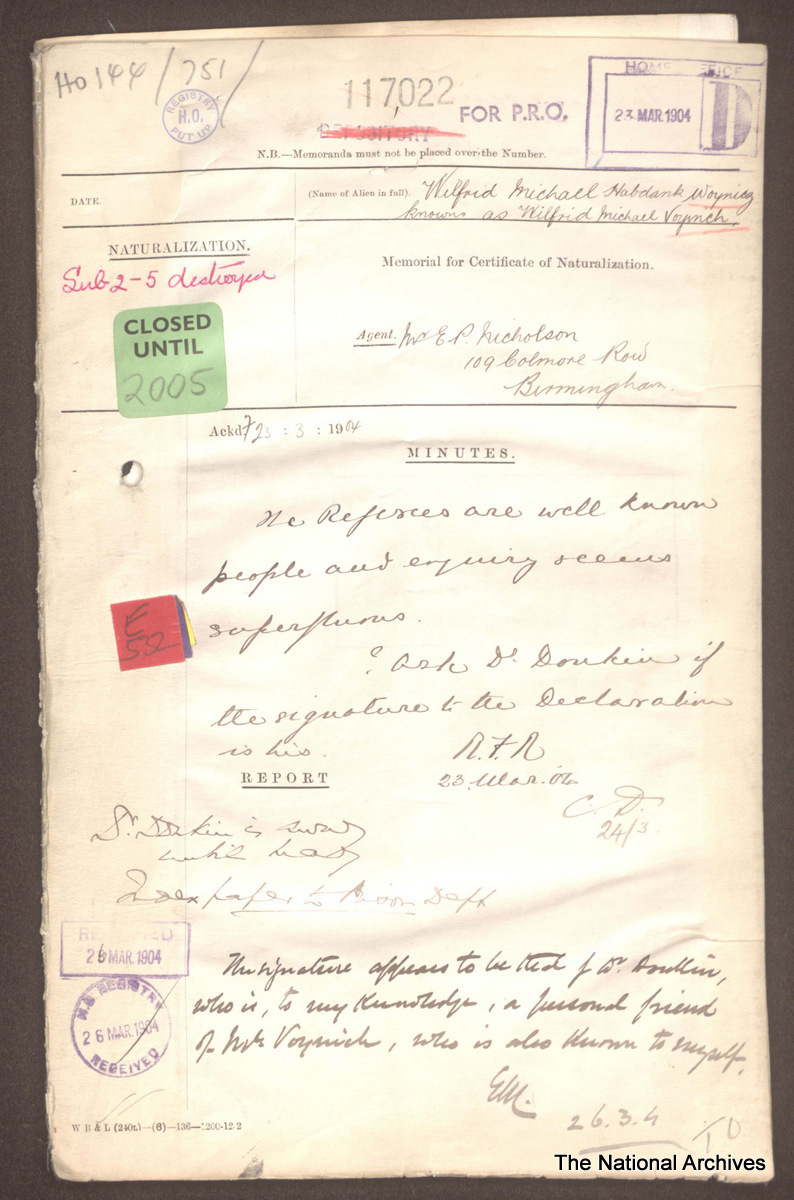 HO 144 / 751 /
REGISTRY
H.O.
PUT UP
117022
DEPOSITORY
FOR P.R.O.
HOME OFFICE
23 MAR. 1904
D
N.B.—Memoranda must not be placed over the Number.
DATE.
(Name of Alien in full). Wilfrid Michael Habdank Woynicz
known as Wilfrid Michael Voynich.
NATURALIZATION.
Sub 2-5 destroyed
Memorial for Certificate of Naturalization.
CLOSED
UNTIL
2005
Agent. Mr E P. Nicholson
109 Colmore Row
Birmingham.
Ackd 23 : 3 : 1904
MINUTES.
The Referees are well known
people and enquiry seems
superfluous.
? Ask Dr. Donkin if
the signature to the Declaration
is his.
23. Mar. 04
REPORT
C. D.
24/3.
Dr. Donkin is away
until
paper to Prison Dept
RECEIVED
26 MAR. 1904
REGISTRY
26 MAR. 1904
RECEIVED
The signature appears to be that of Dr. Donkin,
who is, to my knowledge, a personal friend
of Mr Voynich, who is also known to myself.
26.3.4
W B & L (240r.)—(6)—136—1200-12-2
The National Archives